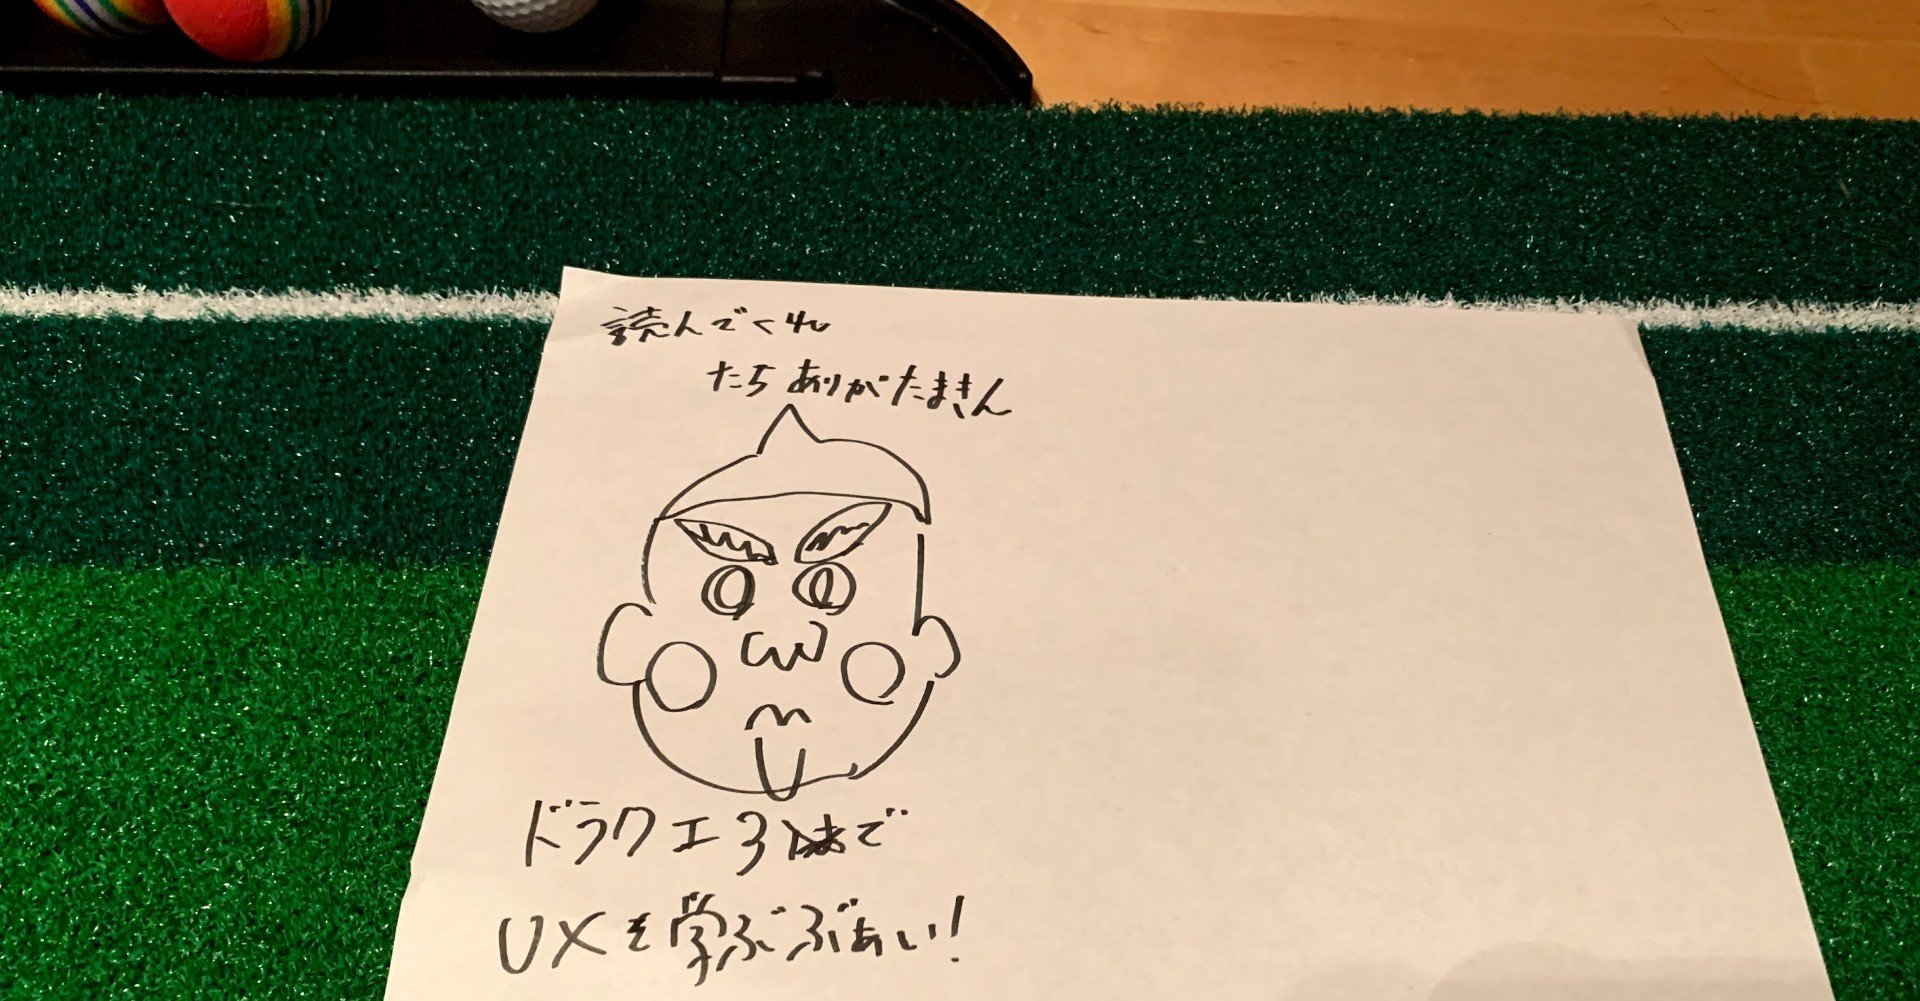 読んでくれ
たらありがたまきん
ドラクエ3まで
UXを学ぶぶぁい!